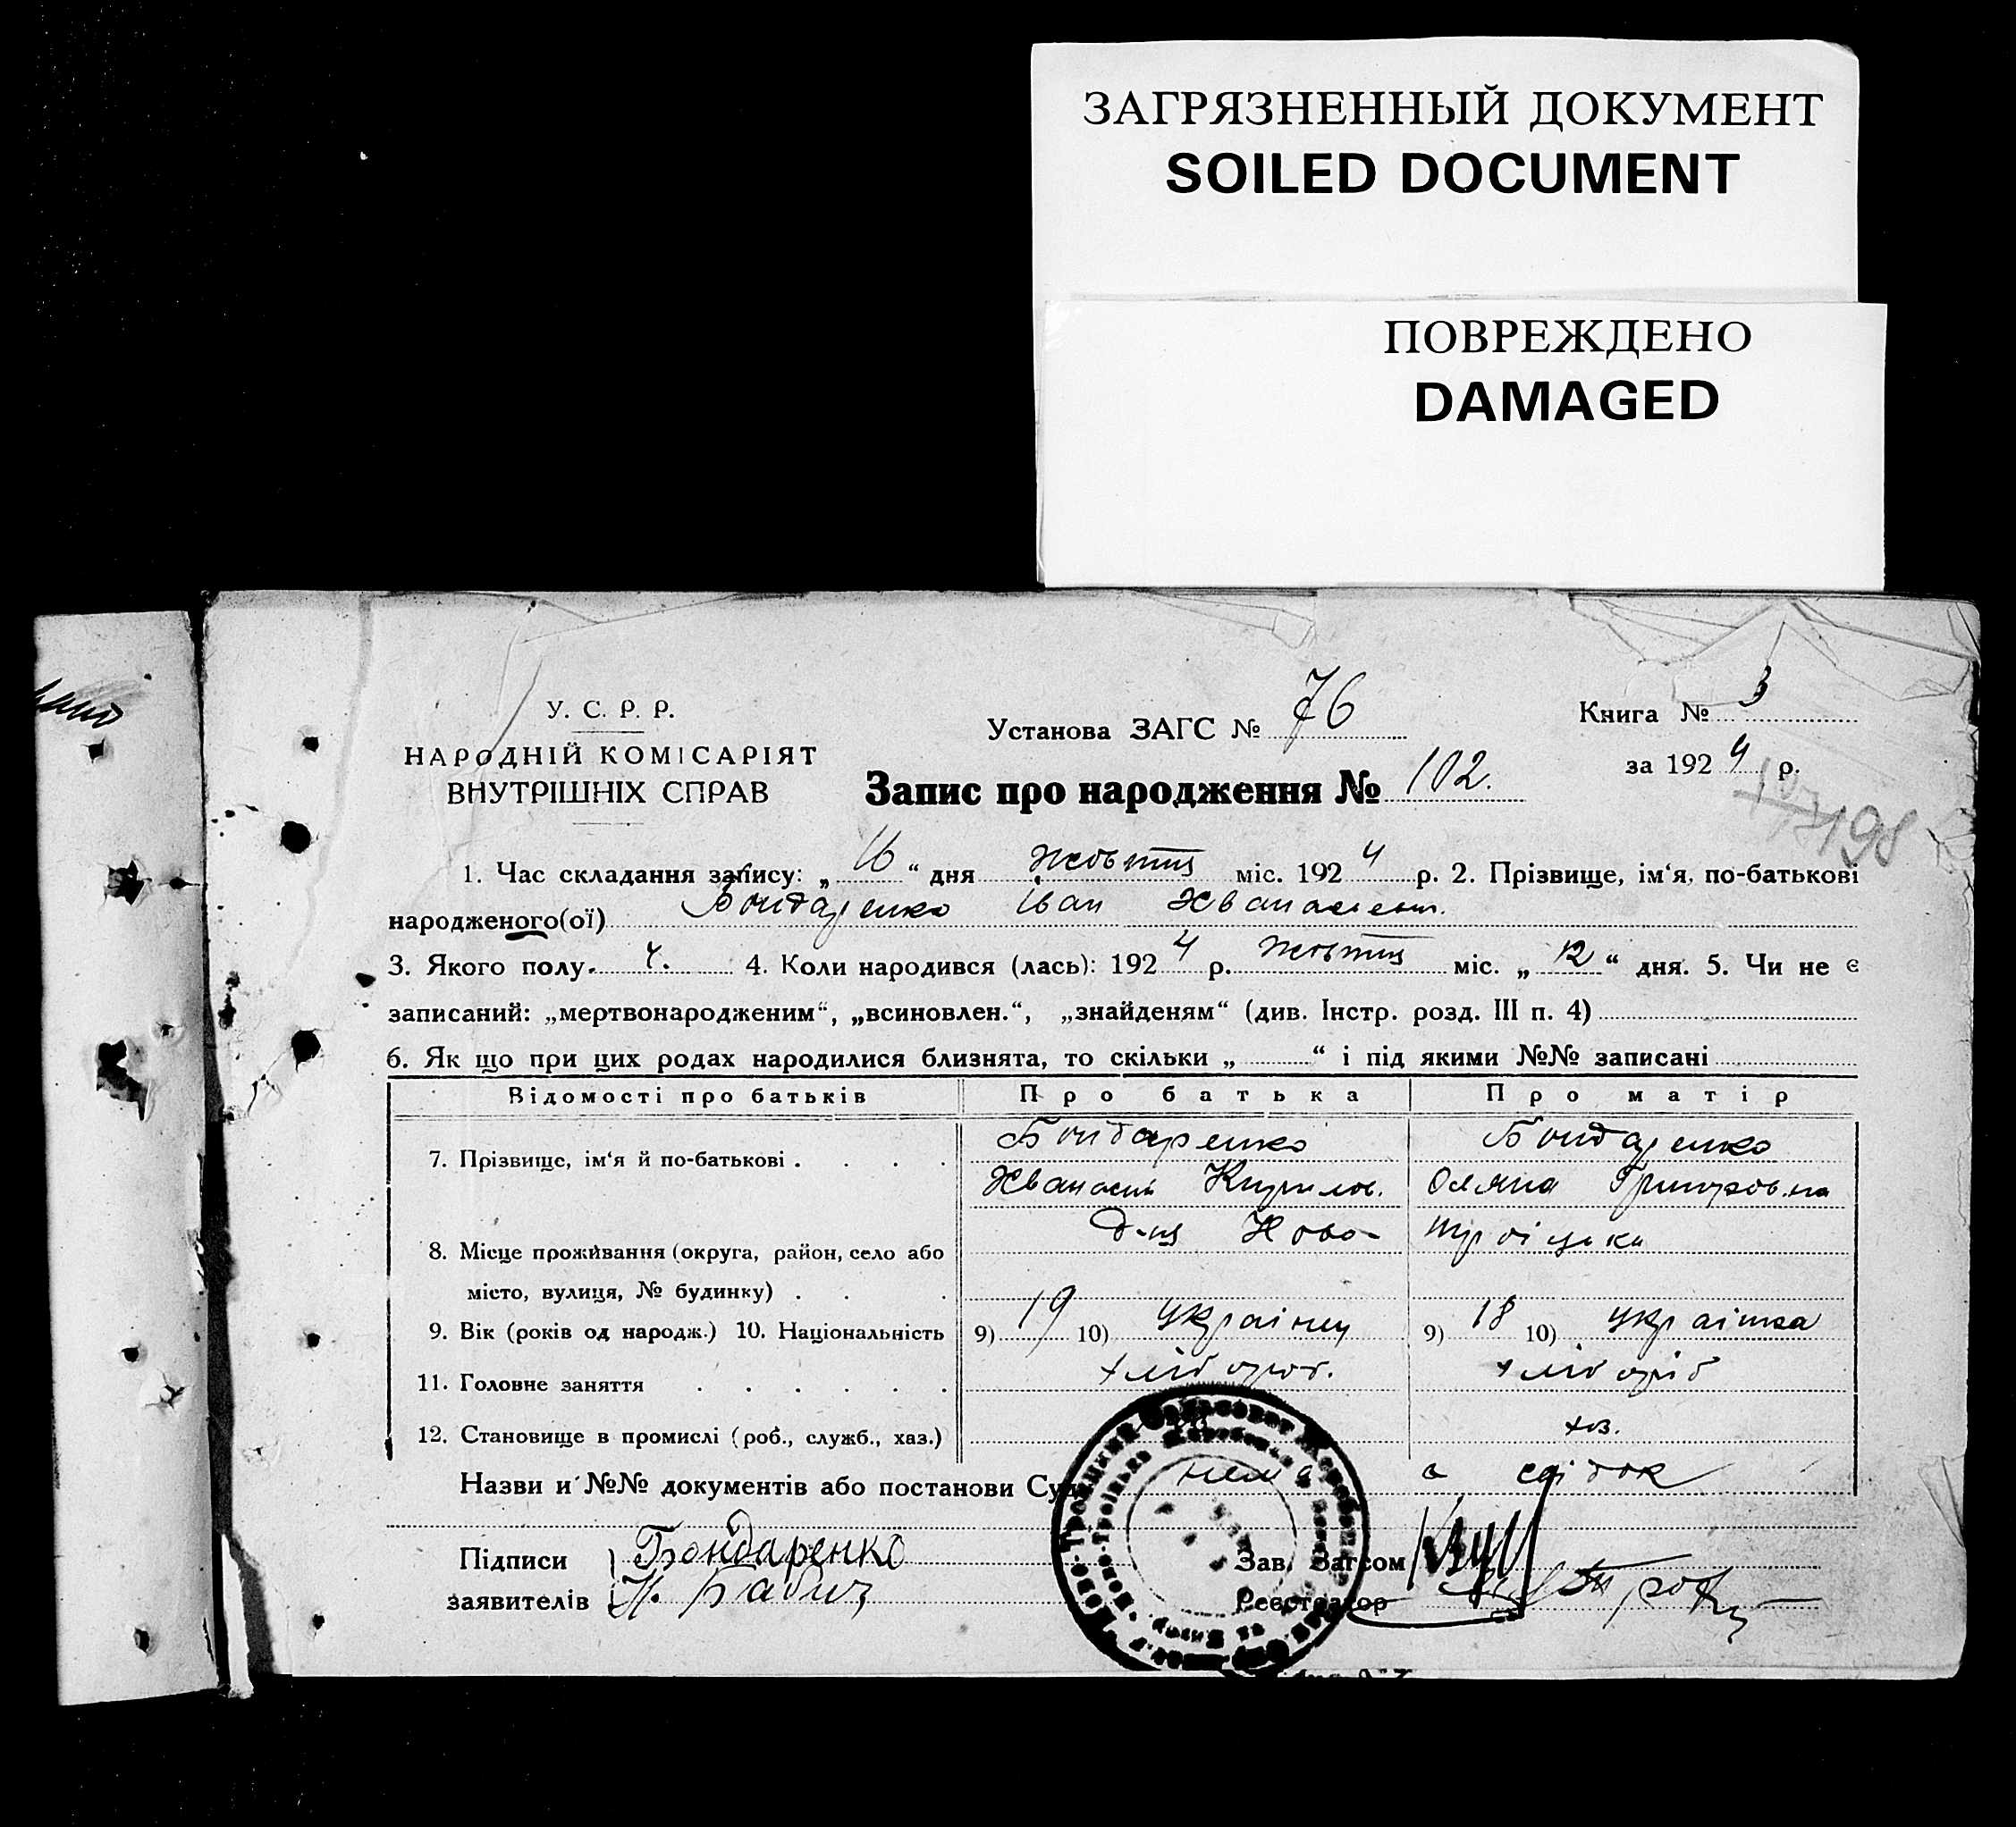 ЗАГРЯЗНЕННЫЙ ДОКУМЕНТ
SOILED DOCUMENT
ПОВРЕЖДЕНО
DAMAGED
У. С. Р. Р.
НАРОДНІЙ КОМІСАРІЯТ
ВНУТРІШНІХ СПРАВ
Установа ЗАГС № 76
Книга № 3
за 1924 р.
Запис про народження № 102.
198
1. Час складання запису: „16“ дня жовтня міс. 1924 р. 2. Прізвище, ім‘я, по-батькові
народженого(ої) Бондаренко Іван Хванасьев.
3. Якого полу. ч. 4. Коли народився (лась): 1924 р. жовтня міс. „12“ дня. 5. Чи не є
записаний: „мертвонародженим“, „всиновлен.“, „знайденям“ (див. Інстр. розд. III п. 4)
6. Як що при цих родах народилися близнята, то скільки „ “ і під якими №№ записані
Відомості про батьків Про батька Про матір
7. Прізвище, ім‘я й по-батькові . . . . Бондаренко Бондаренко
Хванасій Кирилов. Оляна Григоров.на
8. Місце проживання (округа, район, село або д-ця Ново- Троіцька
місто, вулиця, № будинку) . . .
9. Вік (років од народж.) 10. Національність 9) 19 10) українец 9) 18 10) українка
11. Головне заняття . . . . . . хлібороб. хлібороб
12. Становище в промислі (роб., служб., хаз.) хоз.
Назви и №№ документів або постанови Суд нема а свідок
Підписи Бондаренко Зав. Загсом
заявителів Н. Бабич Реєстратор